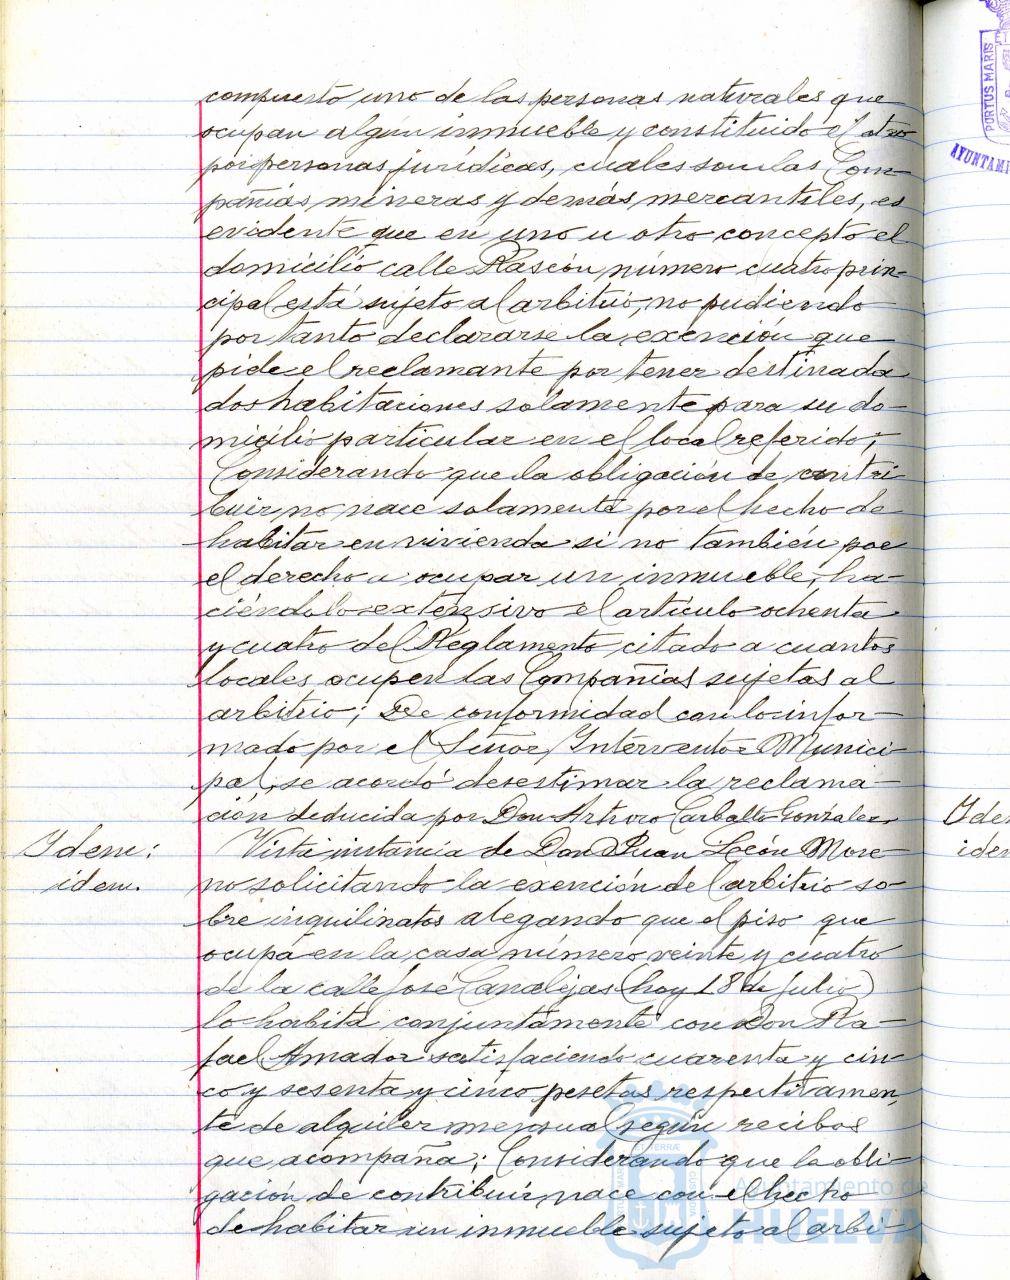 compuesto uno de las personas naturales que
ocupan algún inmueble y constituido el otro
por personas jurídicas, cuales son las Com-
pañías mineras y demás mercantiles, es
evidente que en uno u otro concepto el
domicilio calle Rascón, número cuatro prin-
cipal está sujeto al arbitrio, no pudiendo
por tanto declararse la exención que
pide el reclamante por tener destinada
dos habitaciones solamente para su do-
micilio particular en el local referido;
Considerando que la obligación de contri
buir no nace solamente por el hecho de
habitar en vivienda si no también por
el derecho a ocupar un inmueble, ha-
ciéndolo extensivo el artículo ochenta
y cuatro del Reglamento citado a cuantos
locales ocupen las Compañías sujetas al
arbitrio; De conformidad con lo infor-
mado por el Señor Interventor Munici-
pal, se acordó desestimar la reclama-
ción deducida por Don Arturo Carballo González.
Idem:
idem.
Vista instancia de Don Juan León More-
no solicitando la exención del arbitrio so-
bre inquilinatos alegando que el piso que
ocupa en la casa número veinte y cuatro
de la calle José Canalejas (hoy 18 de Julio)
lo habita conjuntamente con Don Ra-
fael Amador satisfaciendo cuarenta y cin-
co y sesenta y cinco pesetas respectivamen-
te de alquiler mensual según recibos
que acompaña; Considerando que la obli-
gación de contribuir nace con el hecho
de habitar un inmueble sujeto al arbi-
PORTUS MARIS
AYUNTAMI
Idem
idem
Ayuntamiento de
HUELVA